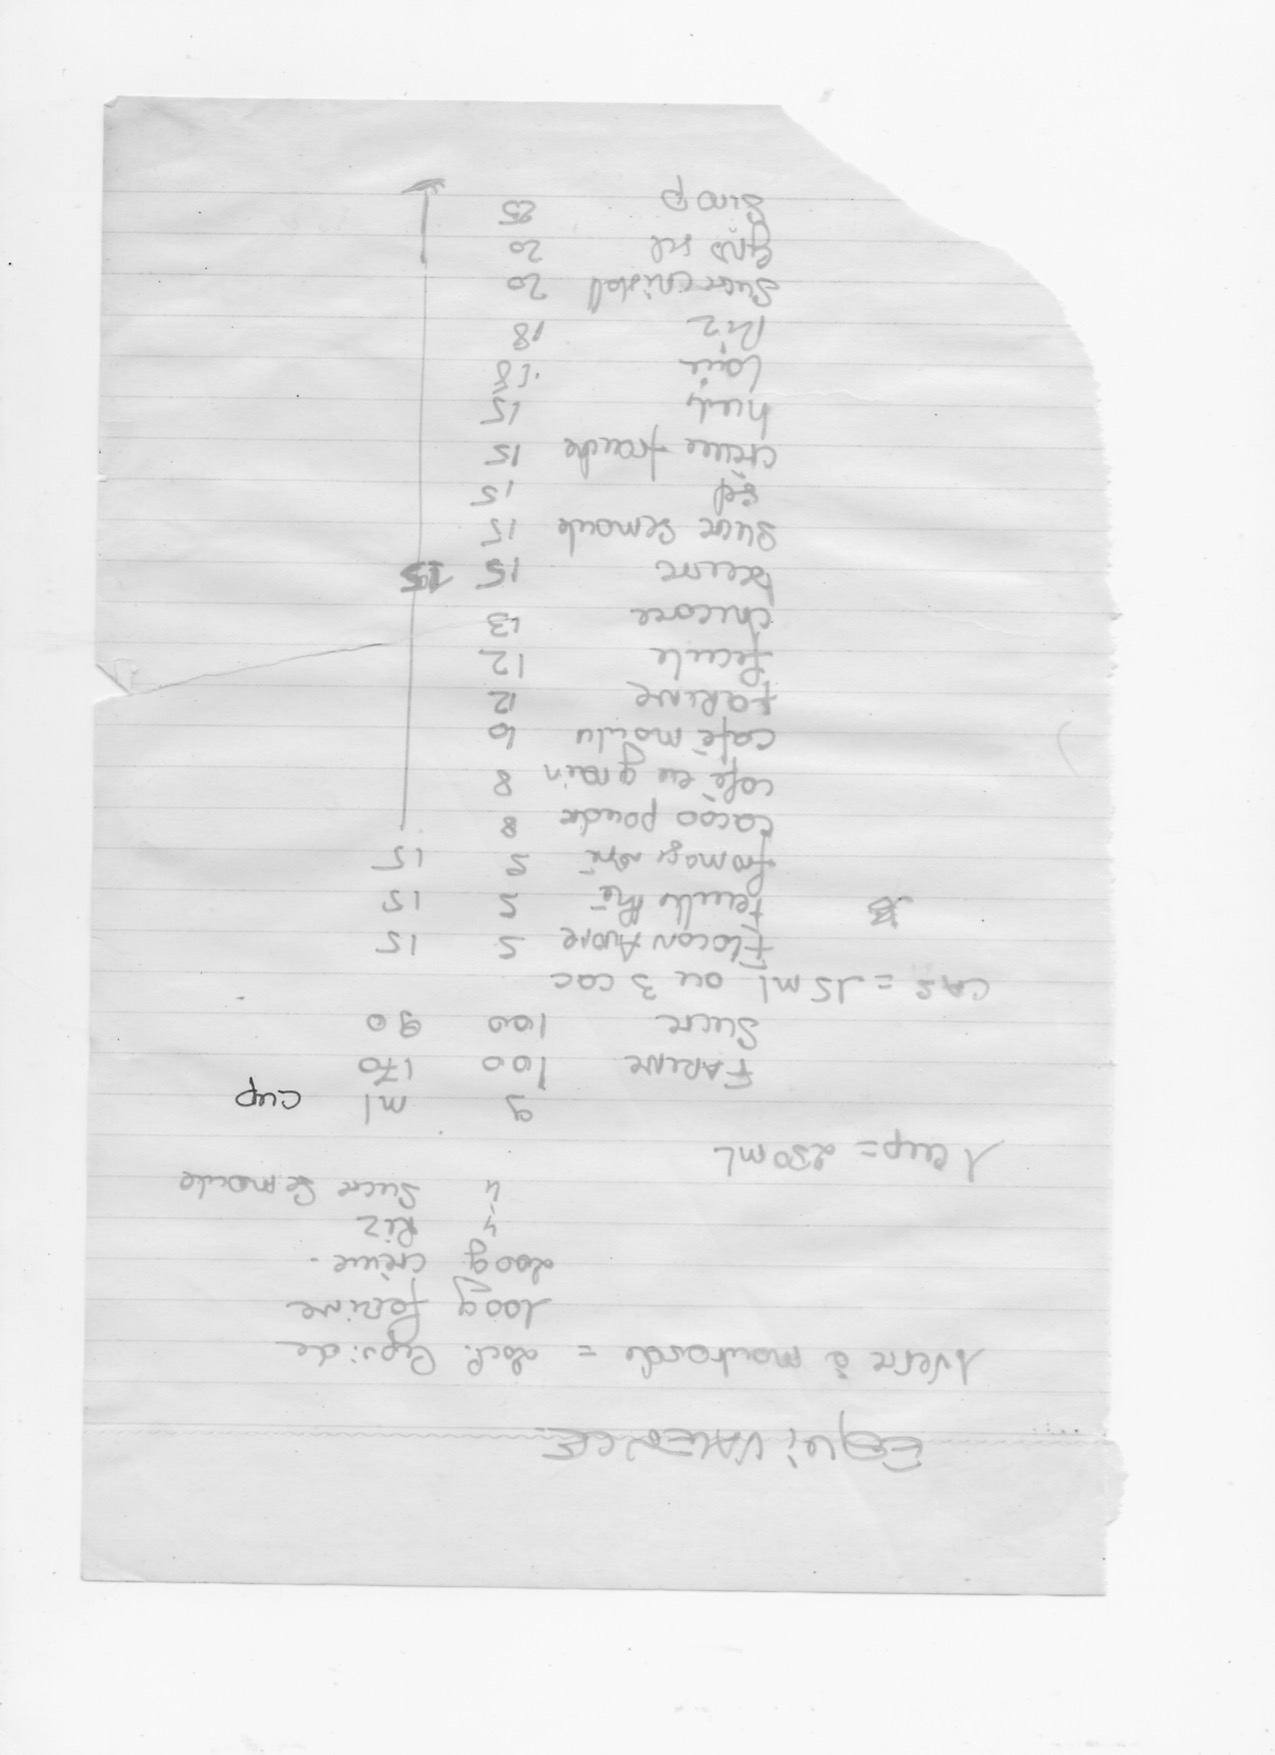 EQUIVALENCE
1 verre à moutarde = 2dcl liquide
100g farine
200g crème
4 Riz
4 Sucre Semoule
1 cup = 250ml
g ml cup
FARINE 100 170
Sucre 100 90
CAS = 15ml ou 3 cac
Flocon Avoine 5 15
Feuille thé 5 15
fromage rapé 5 15
Cacao poudre 8
café en grain 8
café moulu 10
FARINE 12
fecule 12
chicorée 13
Beurre 15 15
Sucre Semoule 15
Sel 15
crème fraiche 15
huile 15
18
Riz 18
Sucre cristal 20
gros sel 20
Sirop 25